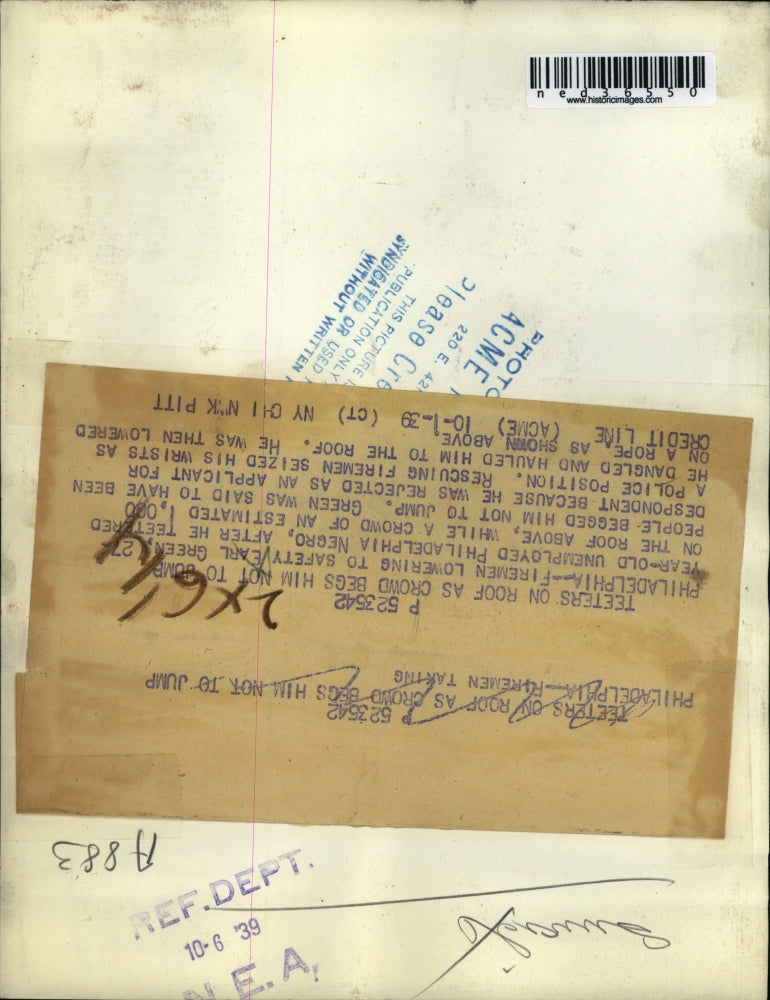 ned36550
www.historicimages.com
PHOTO
ACME
220 E. 42
Please Cre
THIS PICTURE
PUBLICATION ONLY
SYNDICATED OR USED
WITHOUT WRITTEN
P 523542
TEETERS ON ROOF AS CROWD BEGS HIM NOT TO JUMP
PHILADELPHIA
P 523542
TEETERS ON ROOF AS CROWD BEGS HIM NOT TO JUMP
PHILADELPHIA--FIREMEN LOWERING TO SAFETY EARL GREEN, 27-
YEAR-OLD UNEMPLOYED PHILADELPHIA NEGRO, AFTER HE TEETERED
ON THE ROOF, ABOVE, WHILE A CROWD OF AN ESTIMATED 1,000
PEOPLE BEGGED HIM NOT TO JUMP. GREEN WAS SAID TO HAVE BEEN
DESPONDENT BECAUSE HE WAS REJECTED AS AN APPLICANT FOR
A POLICE POSITION. RESCUING FIREMEN SEIZED HIS WRISTS AS
HE DANGLED AND HAULED HIM TO THE ROOF. HE WAS THEN LOWERED
ON A ROPE, AS SHOWN ABOVE.
CREDIT LINE (ACME) 10-1-39 (CT) NY CHI N"K PITT
PHILADELPHIA--FIREMEN TAKING
2x6 1/4
A883
REF. DEPT.
10-6 '39
N.E.A.